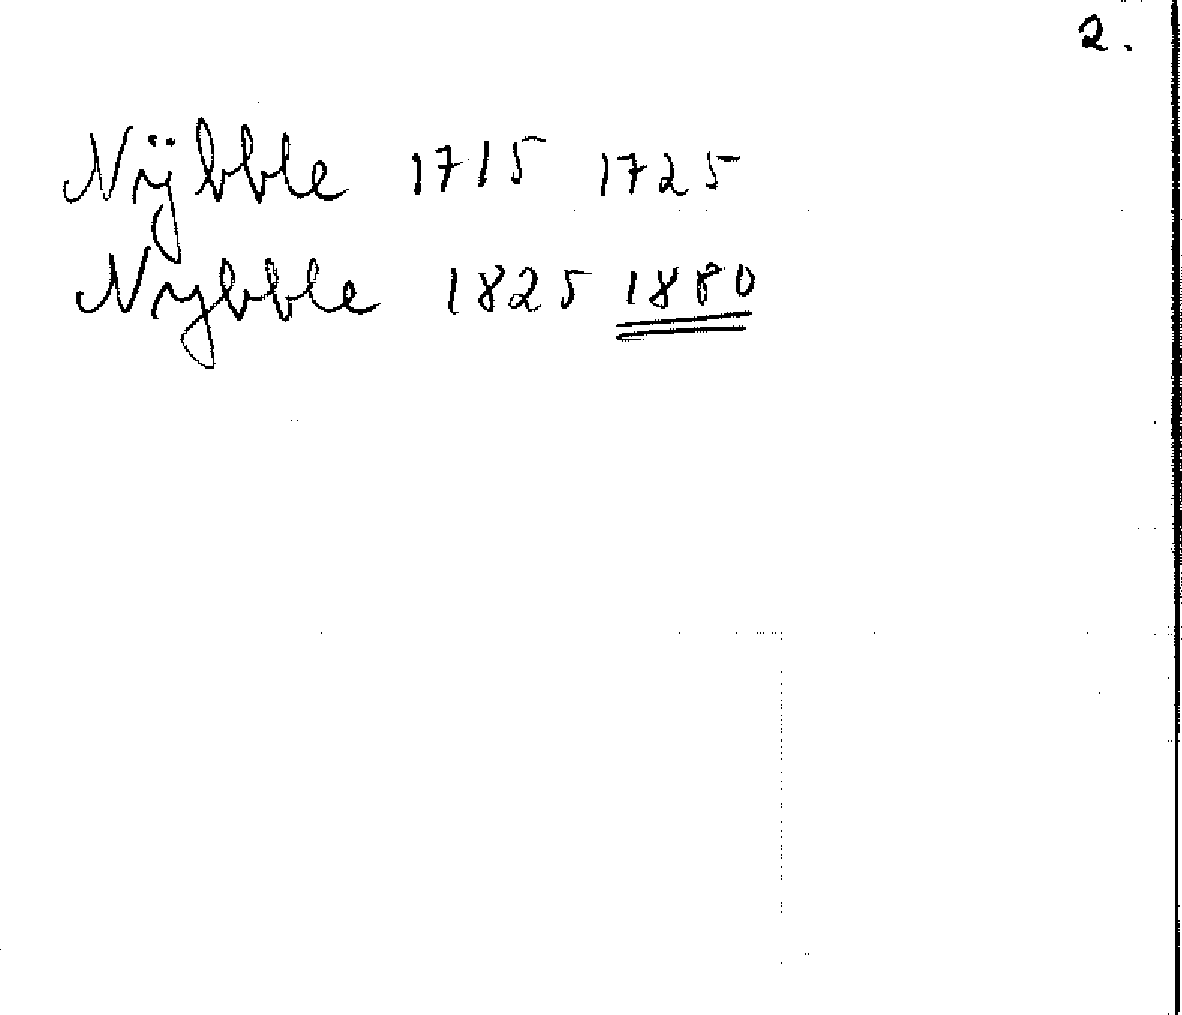 2.
Nÿbble 1715 1725
Nybble 1825 1880